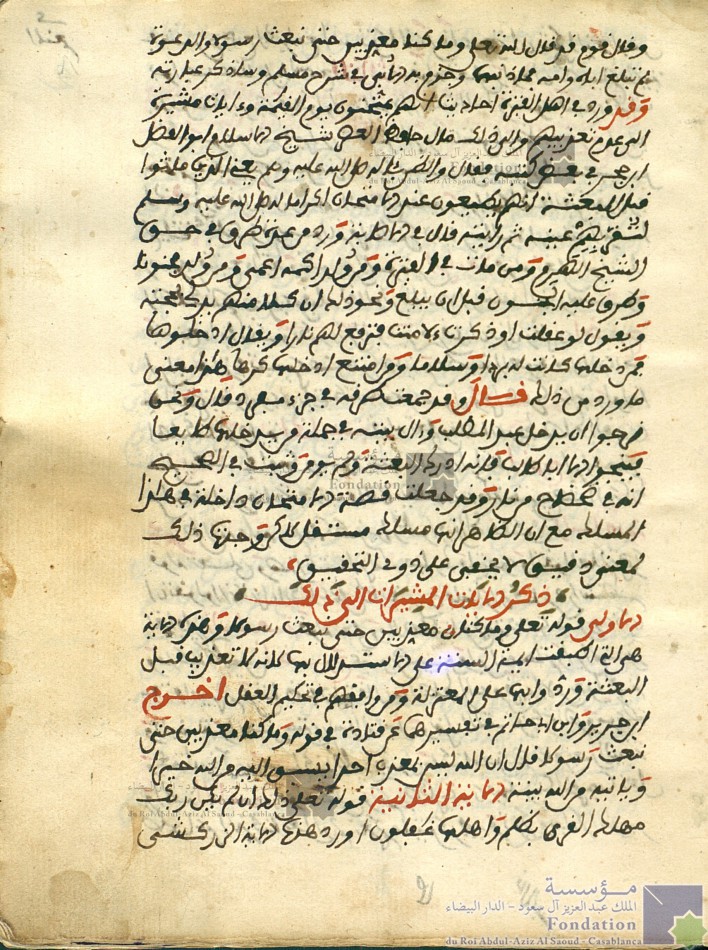 وقال قوم قد قال الله تعلى وما كنا معذبين حتى نبعث رسولا والدعوة
لم تبلغ اباه وامه فما ذنبهما وجزم به الابي في شرح مسلم وساذكر عبارته
وقد ورد في اهل الفترة احاديث انهم يمتحنون يوم القيمة وءايات مشيرة
الى عدم تعذيبهم والى ذلك مال حافظ العصر شيخ الاسلام ابو الفضل
ابن حجر في بعض كتبه فقال والظن بئاله صلى الله عليه وسلم يعني الذين ماتوا
قبل البعثة انهم يطيعون عند الامتحان اكراما له صلى الله عليه وسلم
لتقر بهم عينه ثم رايته قال في الاصابة ورد من عدة طرق في حق
الشيخ الهرم ومن مات في الفترة ومن ولد اكمه اعمى ومن ولد مجنونا
وطرق عليه الجنون قبل ان يبلغ ونحو ذلك ان كلا منهم يدلي بحجته
ويقول لو عقلت او ذكرت لامنت فترفع لهم نار ويقال ادخلوها
فمن دخلها كانت له بردا وسلاما ومن امتنع ادخلها كرها هذا معنى
ما ورد من ذلك قال وقد جمعت طرقه في جزء مفرد قال ونحن
نرجوا ان يدخل عبد المطلب وءال بيته في جملة من يدخلها طايعا
فينجوا الا ابا طالب فانه ادرك البعثة ولم يومن وثبت في الصحيح
انه في ضحضاح من نار وقد جعلت قصة الامتحان داخلة في هذا
المسلك مع ان الظاهر انها مسلك مستقل لكن وجدت ذلك
لمعنى دقيق لا يخفى على ذوي التحقيق
ذكر الايات المشيرات الى ذلك
الاولى قوله تعلى وما كنا معذبين حتى نبعث رسولا وهذه الاية
هي التي اطبقت ايمة السنة على الاستدلال بها لانه لا تعذيب قبل
البعثة وردوا بها على المعتزلة ومن وافقهم في تحكيم العقل اخرج
ابن جرير وابن ابي حاتم في تفسيرهما عن قتادة في قوله وما كنا معذبين حتى
نبعث رسولا قال ان الله ليس بمعذب احدا يسبق اليه من الله خبر ا
وياتيه من الله بينة الاية الثانية قوله تعلى ذلك ان لم يكن ربك
مهلك القرى بظلم واهلها غفلون اورد هذه الاية الزركشي
مؤسسة
الملك عبد العزيز آل سعود - الدار البيضاء
Fondation
du Roi Abdul-Aziz Al Saoud - Casablanca